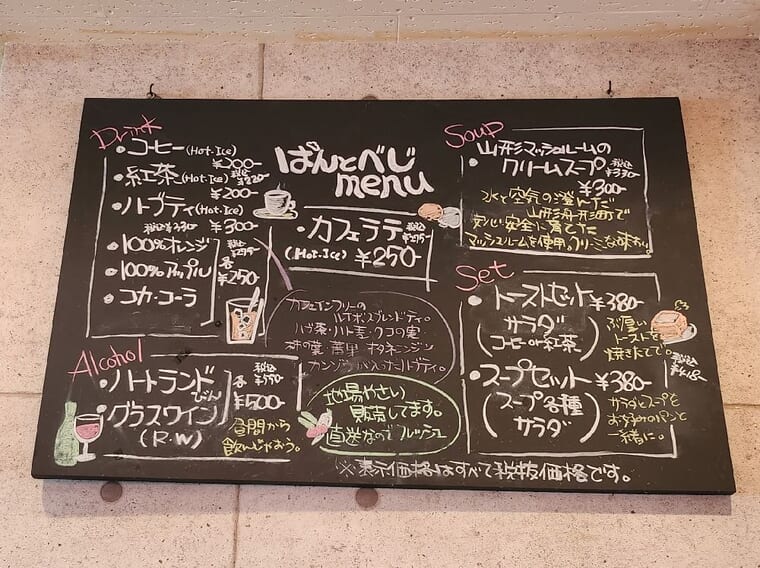 ぱんとべじ
menu
Drink
・コーヒー(Hot・Ice)
¥200-
・紅茶(Hot・Ice) 税込¥220-
¥200-
・ハーブティ(Hot・Ice)
税込¥330- ¥300-
・100%オレンジ
・100%アップル
・コカ・コーラ
税込¥275-
各¥250-
・カフェラテ 税込¥275-
(Hot・Ice) ¥250-
カフェインフリーの
ハト麦・クコの実
カンゾウが入ったハーブティ。
Alcohol
・ハートランド
びん
・グラスワイン
(R・W)
税込¥550-
各¥500-
昼間から
飲んじゃおう。
地場やさい
販売してます。
直送なのでフレッシュ
Soup
・山形マッシュルームの
クリームスープ 税込¥330-
¥300-
水と空気の澄んだ
山形舟形町で
安心・安全に育てた
マッシュルームを使用。クリーミーな味わい。
Set
・トーストセット¥380-
サラダ
(コーヒーor紅茶)
ぶ厚い
トーストを
焼きたてで。
税込¥418-
・スープセット¥380-
(スープ各種
サラダ)
サラダとスープを
お好みのパンと
一緒に。
※表示価格はすべて税抜価格です。